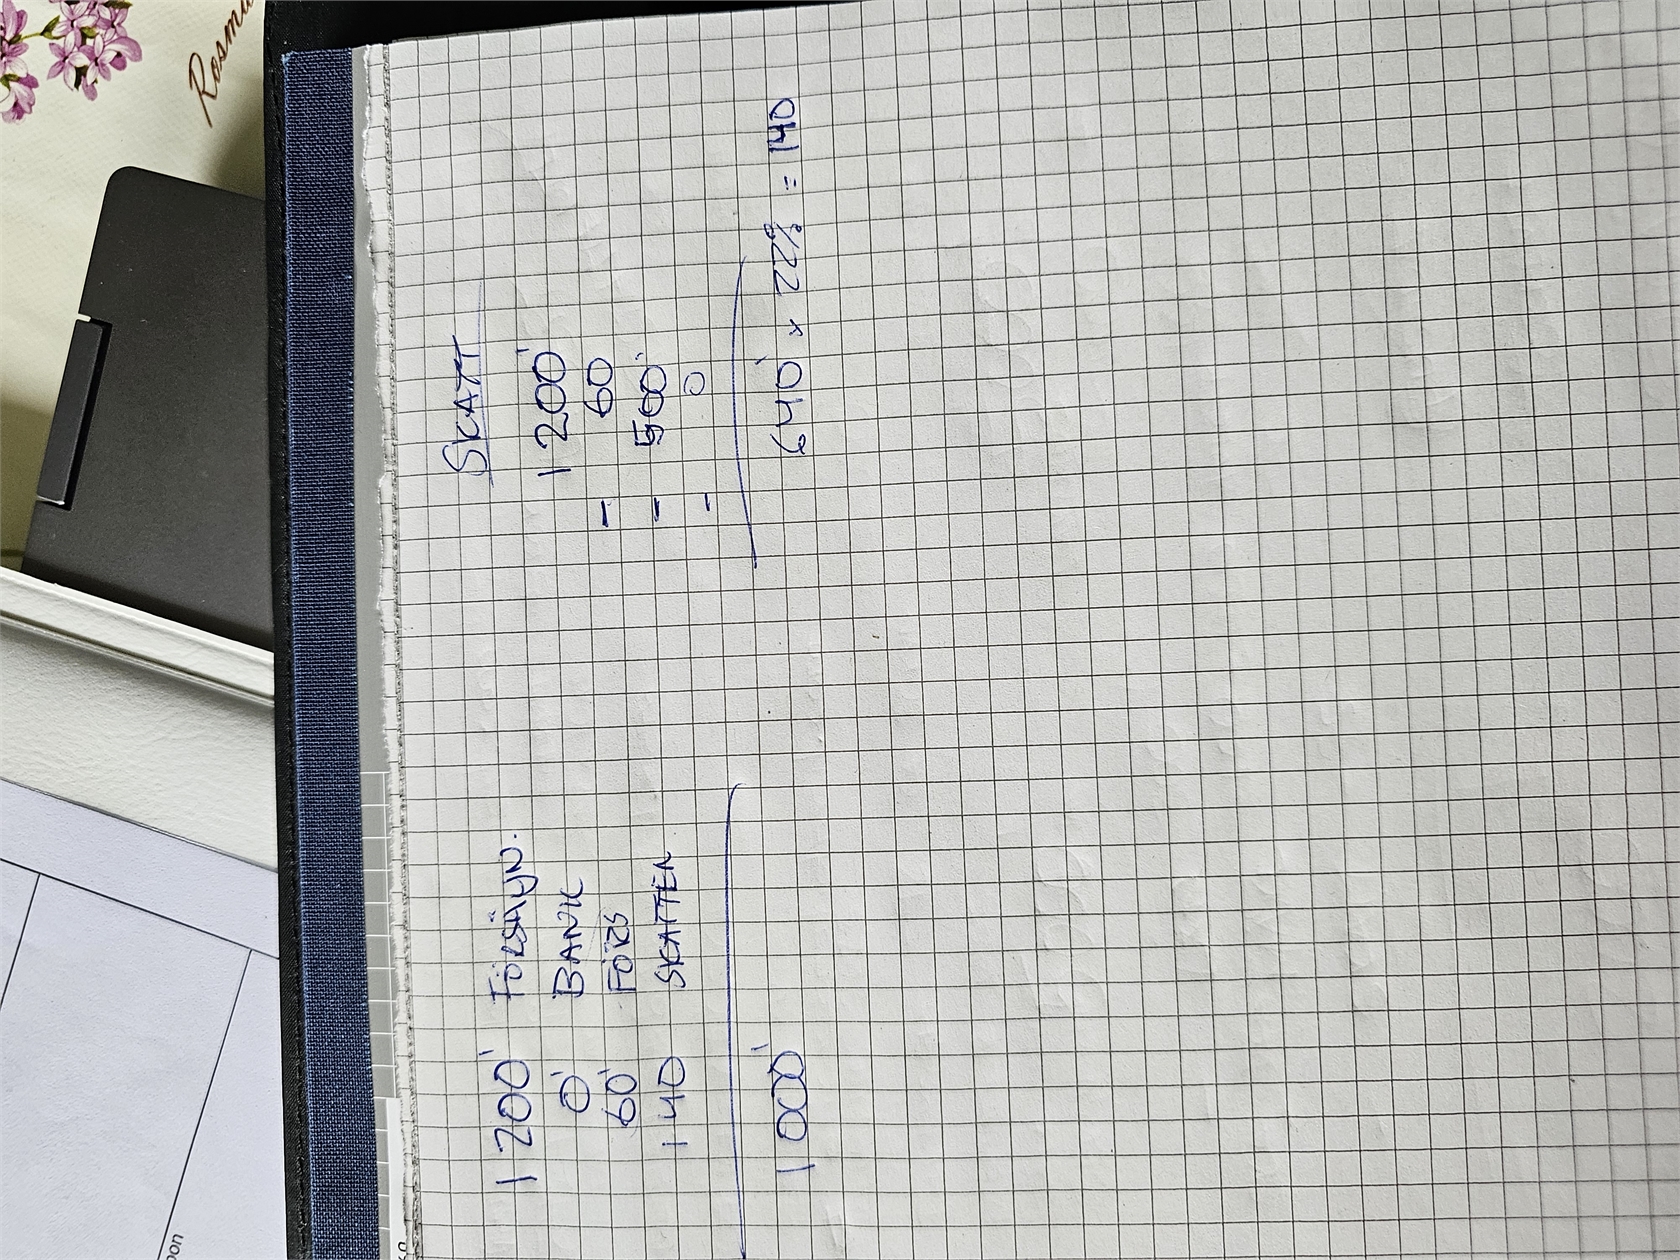 1 200' FÖRSÄLJN.
0' BANK
60' FÖRS
140 SKATTEN
1 000'
SKATT
1 200'
- 60
- 500'
- 0
640' x 22% = 140